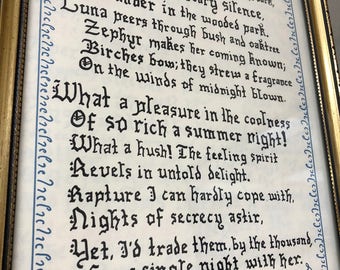 silence,
in the wooded park.
Luna peers through bush and oaktree
Zephyr makes her coming known;
Birches bow; they strew a fragrance
On the winds of midnight blown.
What a pleasure in the coolness
Of so rich a summer night!
What a hush! The feeling spirit
Revels in untold delight.
Rapture I can hardly cope with,
Nights of secrecy astir,
Yet, I'd trade them, by the thousand,
single night with her.